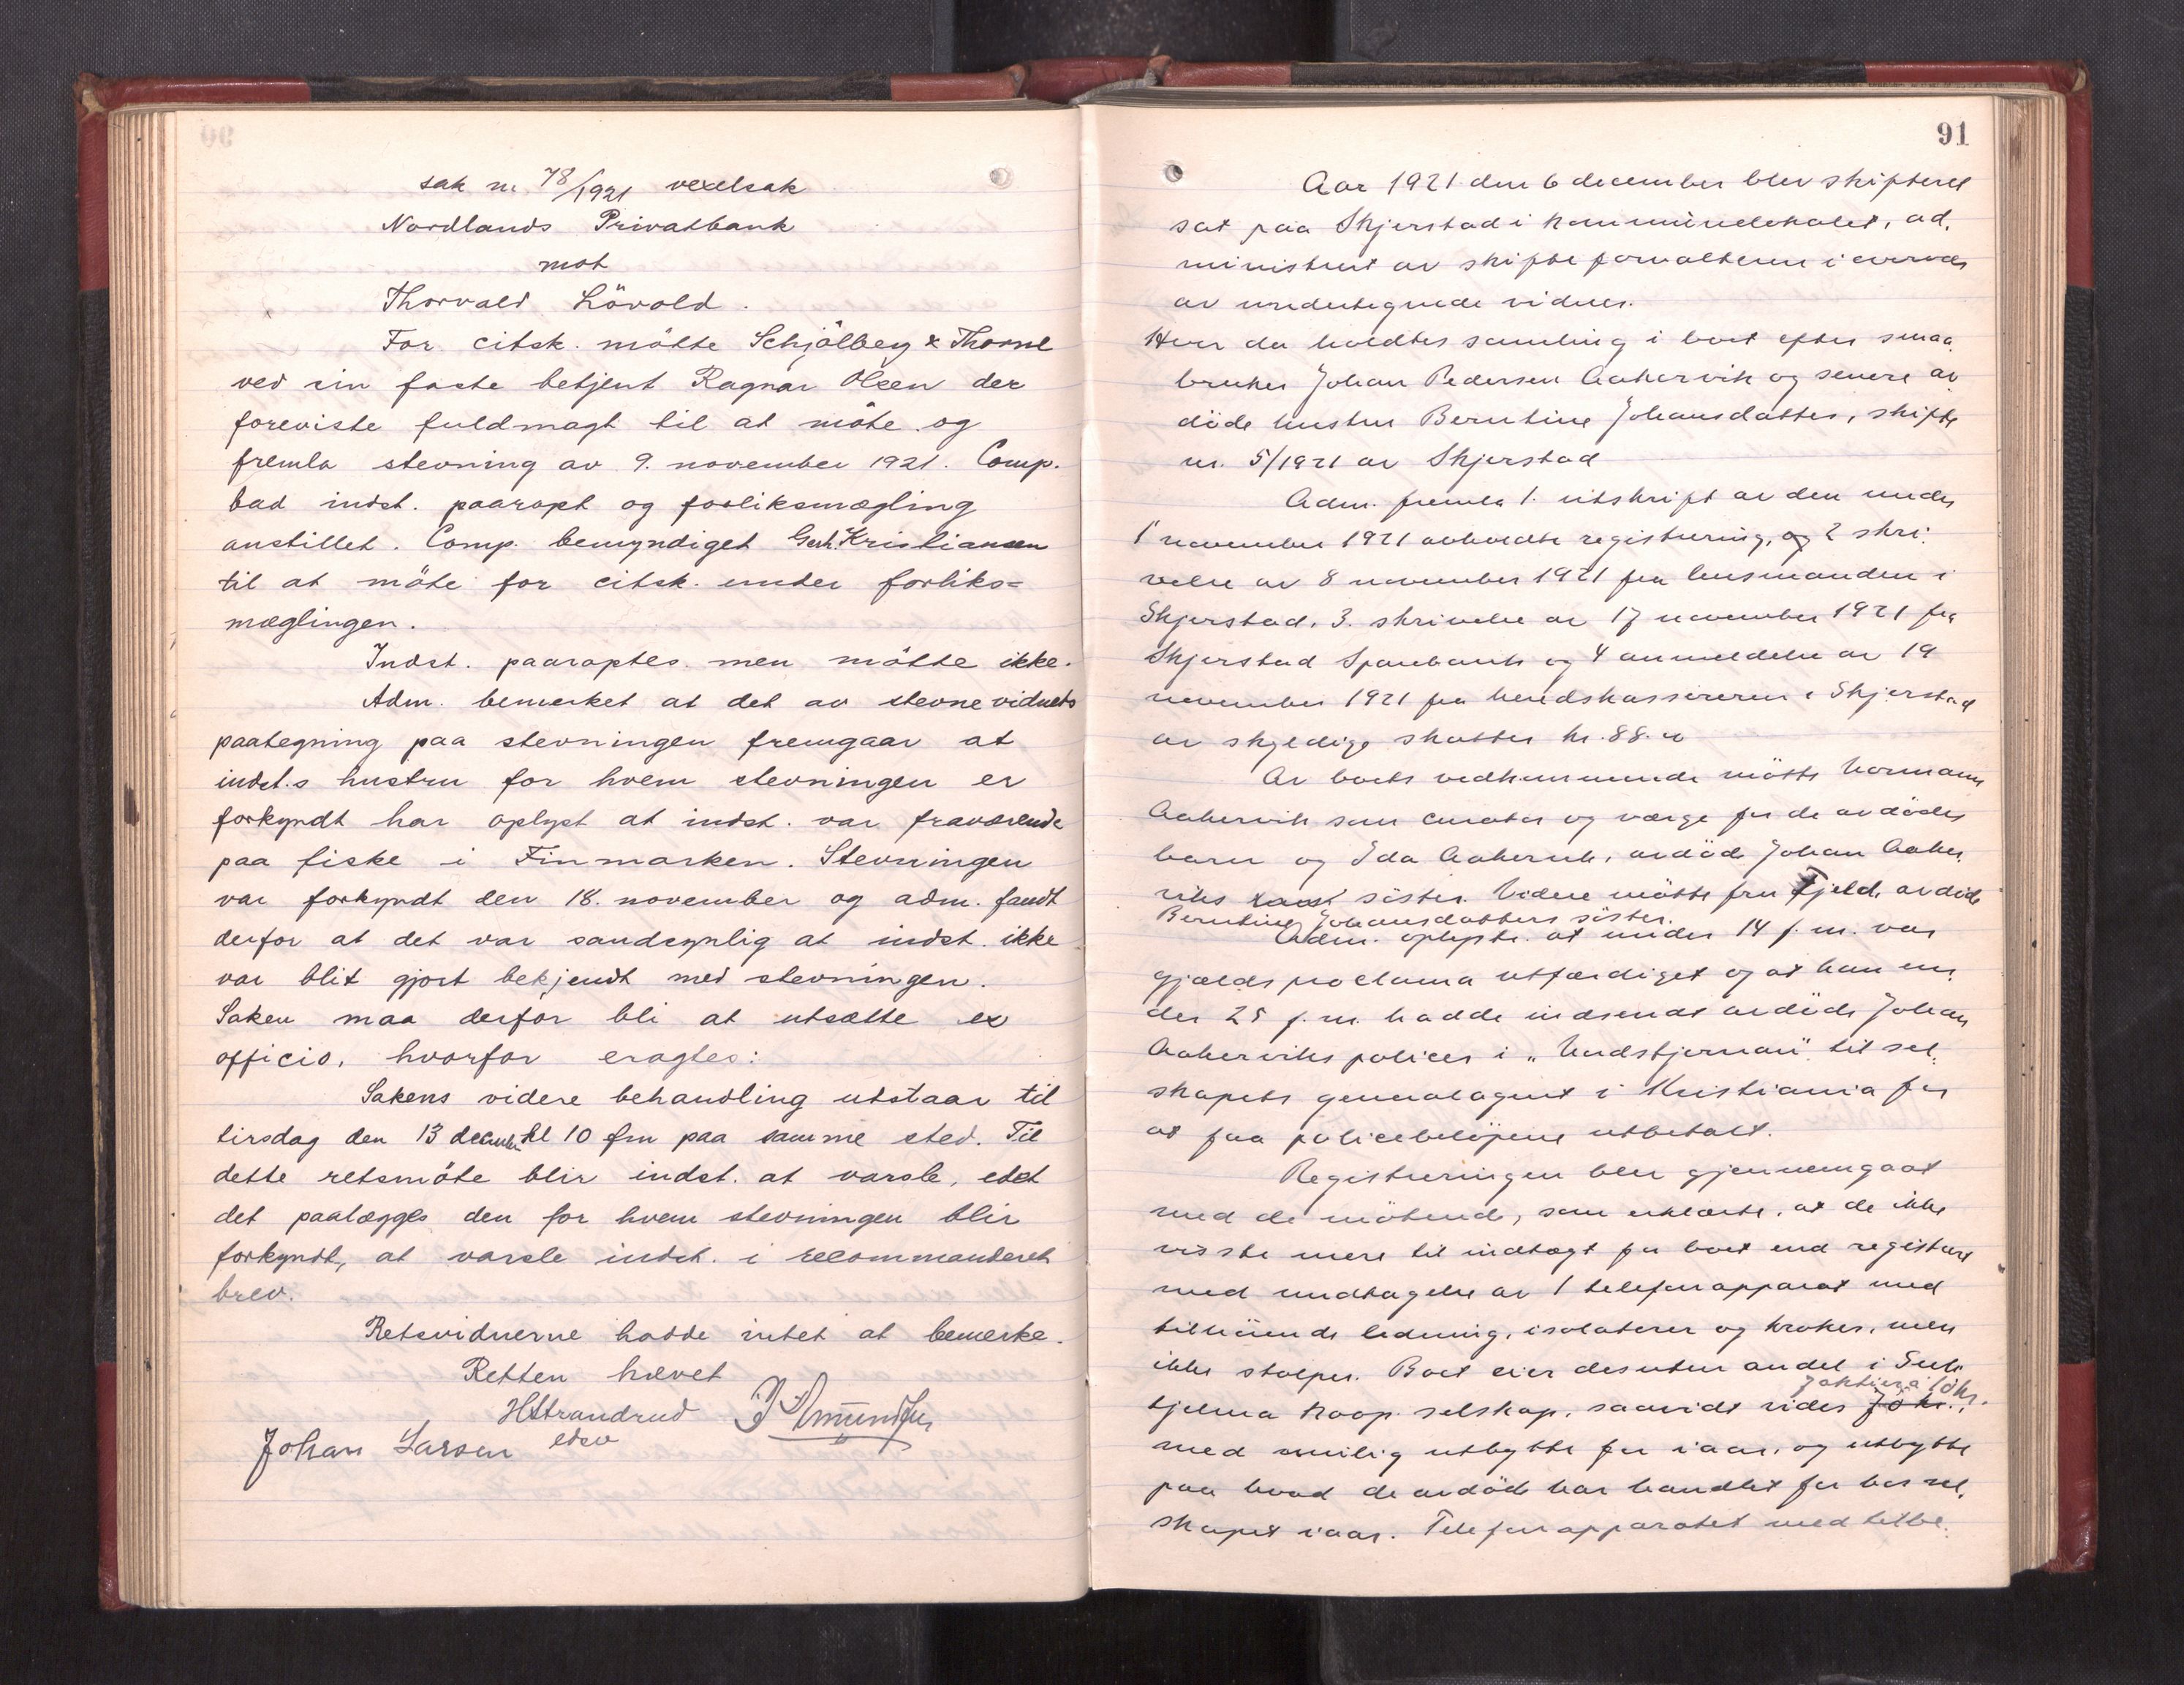 sak nr 78/1921 vexelsak
Nordlands Privatbank
mot
Thorvald Lövold.
For citsk. mötte Schjölberg & Thorne
ved sin faste betjent Ragnar Olsen der
foreviste fuldmagt til at möte og
fremla stevning av 9. november 1921. Comp.
bad indst. paaropt og forliksmægling
anstillet. Comp. bemyndiget Gerh. Kristiansen
til at möte for citsk. under forliks=
mæglingen.
Indst. paaroptes men mötte ikke.
Adm. bemerket at det av stevnevidnets
paategning paa stevningen fremgaar at
indst.s hustru for hvem stevningen er
forkyndt har oplyst at indst. var fraværende
paa fiske i Finmarken. Stevningen
var forkyndt den 18. november og adm. fandt
derfor at det var sandsynlig at indst. ikke
var blit gjort bekjendt med stevningen.
Saken maa derfor bli at utsætte ex
officio, hvorfor eragtes:
Sakens videre behandling utstaar til
tirsdag den 13 decemb. kl 10 fm paa samme sted. Til
dette retsmöte blir indst. at varsle, idet
det paalægges den for hvem stevningen blir
forkyndt, at varsle indst. i recommanderet
brev.
Retsvidnerne hadde intet at bemerke.
Retten hævet
HStrandrud
Johan Larsen edsv
91
Aar 1921 den 6 december blev skifteret
sat paa Skjerstad i kommunelokalet, ad.
ministrert av skifteforvalteren i overvær
av undertegnede vidner.
Hvor da holdtes samling i boet efter smaa.
bruker Johan Pedersen Aakervik og senere av
döde hustru Berntine Johansdatter, skifte
nr. 5/1921 av Skjerstad
Adm. fremla 1. utskrift av den under
1 november 1921 avholdte registrering, og 2 skri.
velse av 8 november 1921 fra lensmanden i
Skjerstad, 3. skrivelse av 17 november 1921 fra
Skjerstad Sparebank og 4 anmeldelse av 19
november 1921 fra herredskassereren i Skjerstad
av skyldige skatter kr. 88.
Av boets vedkommende mötte Normann
Aakervik som curator og værge for de avdödes
barn og Ida Aakervik, avdöde Johan Aaker.
viks söster. Videre mötte fru Fjeld, avdöde
Berntine Johansdatters söster.
Adm. oplyste at under 14 f.m. var
gjældsproclama utfærdiget og at han un.
der 25 f.m. hadde indsendt avdöde Johan
Aakerviks polices i "Nordstjernan" til sel.
skapets generalagent i Kristiania for
at faa policebelöpene utbetalt.
Registreringen blev gjennemgaat
med de mötende, som erklærte, at de ikke
visste mere til indtægt for boet end registrert
med undtagelse av 1 telefonapparat med
tilhörende ledning, isolatorer og kroker, men
ikke stolper. Boet eier desuten andel i Suli
tjelma koop. selskap, saavidt vides
med mulig utbytte for iaar, og utbytte
paa hvad de avdöde har handlet for hos sel.
skapet iaar. Telefonapparatet med tilbe.